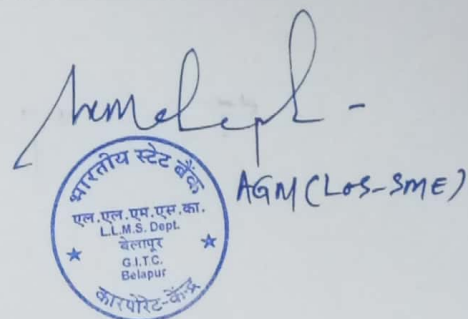 AGM (LOS-SME)
भारतीय स्टेट बैंक
एल.एल.एम.एस.का.
L.L.M.S. Dept.
बेलापूर
G.I.T.C.
Belapur
कारपोरेट-केन्द्र